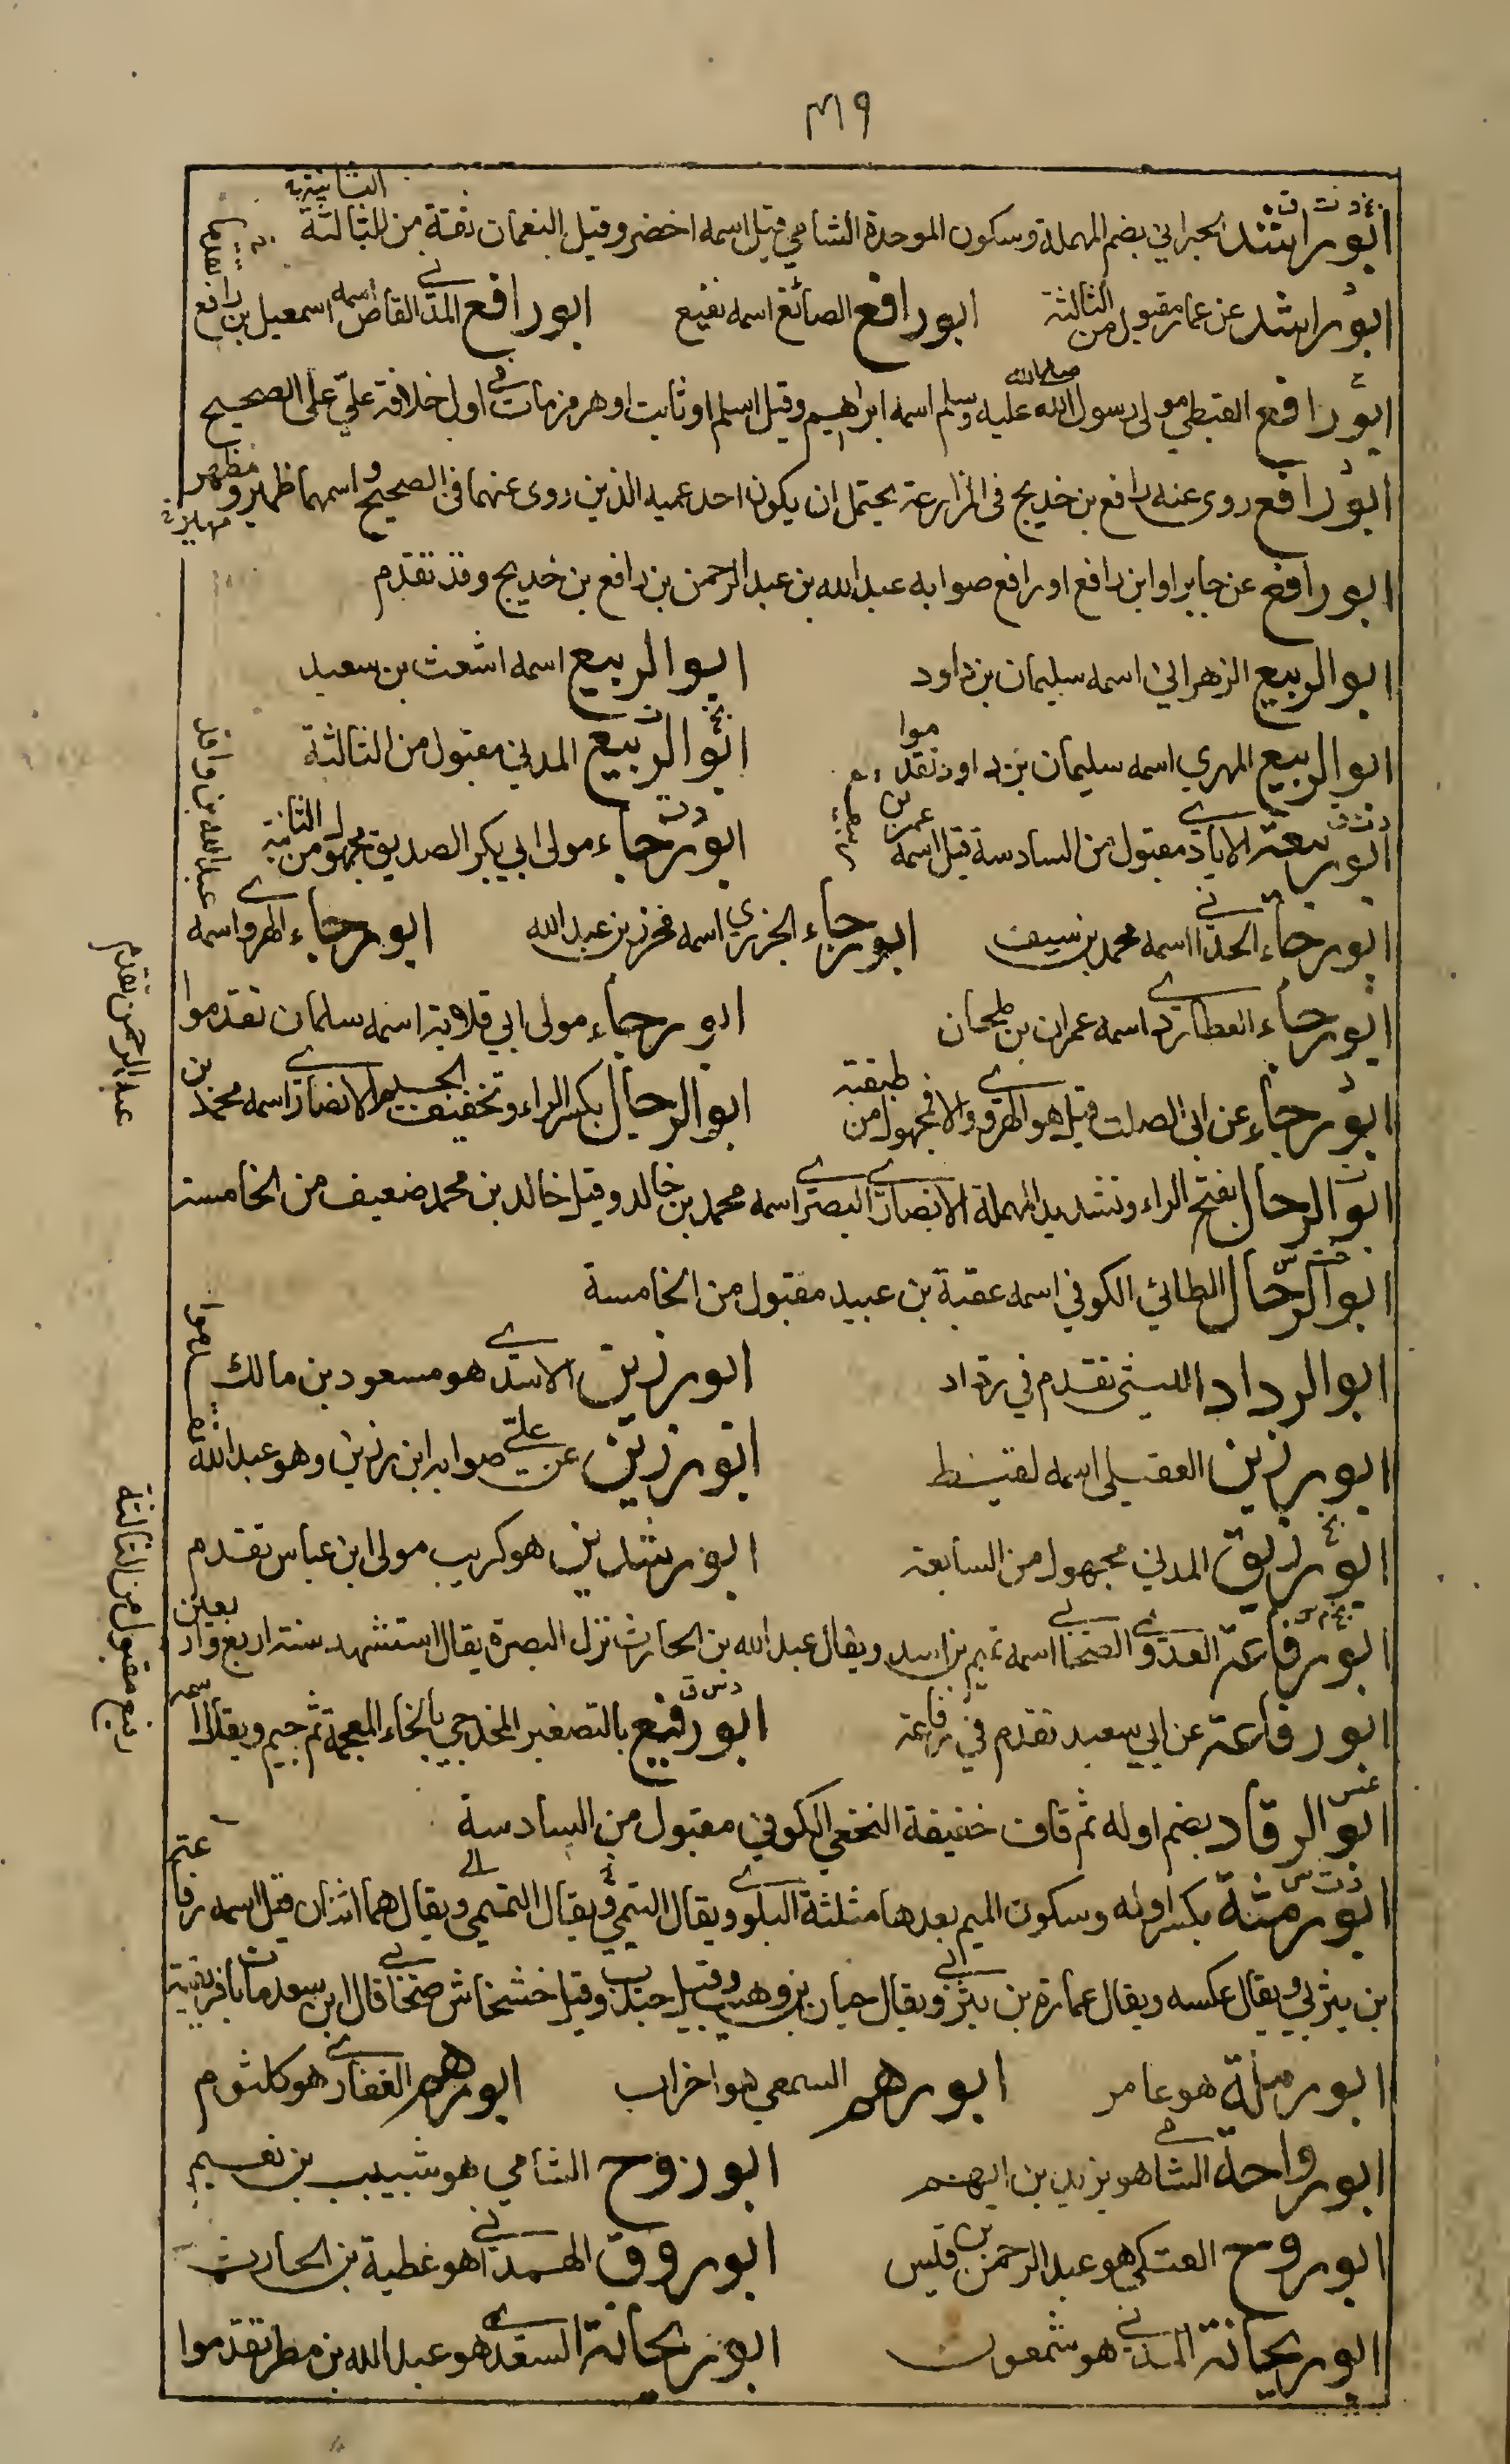 ٣١٩
الثانية
بخ د ت ق
ابو راشد الحبراني بضم المهملة وسكون الموحدة الشامي قيل اسمه اخضر وقيل النعمان ثقة من الثالثة
ابو راشد عن عمار مقبول من الثالثة ابو رافع الصائغ اسمه نفيع ابو رافع المدني القاص اسمه اسمعيل بن رافع
ابو رافع القبطي مولى رسول الله صلى الله عليه وسلم اسمه ابراهيم وقيل اسلم او ثابت او هرمز مات في اول خلافة علي على الصحيح
ابو رافع روى عنه رافع بن خديج في المزارعة يحتمل ان يكون احد عميه الذين روى عنهما في الصحيح واسمهما ظهير ومظهر
ابو رافع عن جابر او ابن رافع او رافع صوابه عبد الله بن عبد الرحمن بن رافع بن خديج وقد تقدم
ابو الربيع الزهراني اسمه سليمان بن داود ابو الربيع اسمه اشعث بن سعيد
ابو الربيع المهري اسمه سليمان بن داود تقدموا ابو الربيع المدني مقبول من الثالثة
ابو ربيعة الايادي مقبول من السادسة قيل اسمه عمر بن ربيعة ابو رجاء مولى ابي بكر الصديق مجهول من الثانية
ابو رجاء الحداني اسمه محمد بن سيف ابو رجاء الجزري اسمه محرز بن عبد الله ابو رجاء الهروي اسمه
عبد الله بن واقد
ابو رجاء العطاردي اسمه عمران بن ملحان ابو رجاء مولى ابي قلابة اسمه سلمان تقدموا
ابو رجاء عن ابي الصلت قيل هو الهروي والا فمجهول من طبقته ابو الرجال بكسر الراء وتخفيف الجيم الانصاري اسمه محمد بن
عبد الرحمن تقدم
ابو الرحال بفتح الراء وتشديد المهملة الانصاري البصري اسمه محمد بن خالد وقيل خالد بن محمد ضعيف من الخامسة
ابو الرحال الطائي الكوفي اسمه عقبة بن عبيد مقبول من الخامسة
ابو الرداد الليثي تقدم في رداد ابو رزين الاسدي هو مسعود بن مالك
ابو رزين العقيلي اسمه لقيط ابو رزين عن علي صوابه ابن رزين وهو عبد الله تقدموا
ابو رزيق المدني مجهول من السابعة ابو رشدين هو كريب مولى ابن عباس تقدم
ابو رفاعة العدوي الصحابي اسمه تميم بن اسد ويقال عبد الله بن الحارث نزل البصرة يقال استشهد سنة اربع واربعين
ابو رفاعة عن ابي سعيد تقدم في رفاعة ابو رفيع بالتصغير المخدجي بالخاء المعجمة ثم جيم ويقال اسمه
رفيع مقبول من الثالثة
ابو الرقاد بضم اوله ثم قاف خفيفة النخعي الكوفي مقبول من السادسة
ابو رمثة بكسر اوله وسكون الميم بعدها مثلثة البلوي ويقال التيمي ويقال التميمي ويقال هما اثنان قيل اسمه رفاعة
بن يثربي ويقال عكسه ويقال عمارة بن يثربي ويقال حيان بن وهيب وقيل جندب وقيل خشخاش صحابي قال ابن سعد مات بافريقية
ابو رملة هو عامر ابو رهم السمعي هو احزاب ابو رهم الغفاري هو كلثوم
ابو رواحة الشامي هو يزيد بن ايهم ابو روح الشامي هو شبيب بن نعيم
ابو روح العتكي هو عبد الرحمن بن قيس ابو روق الهمداني هو عطية بن الحارث
ابو ريحانة المدني هو شمعون ابو ريحانة السعدي هو عبد الله بن مطر تقدموا